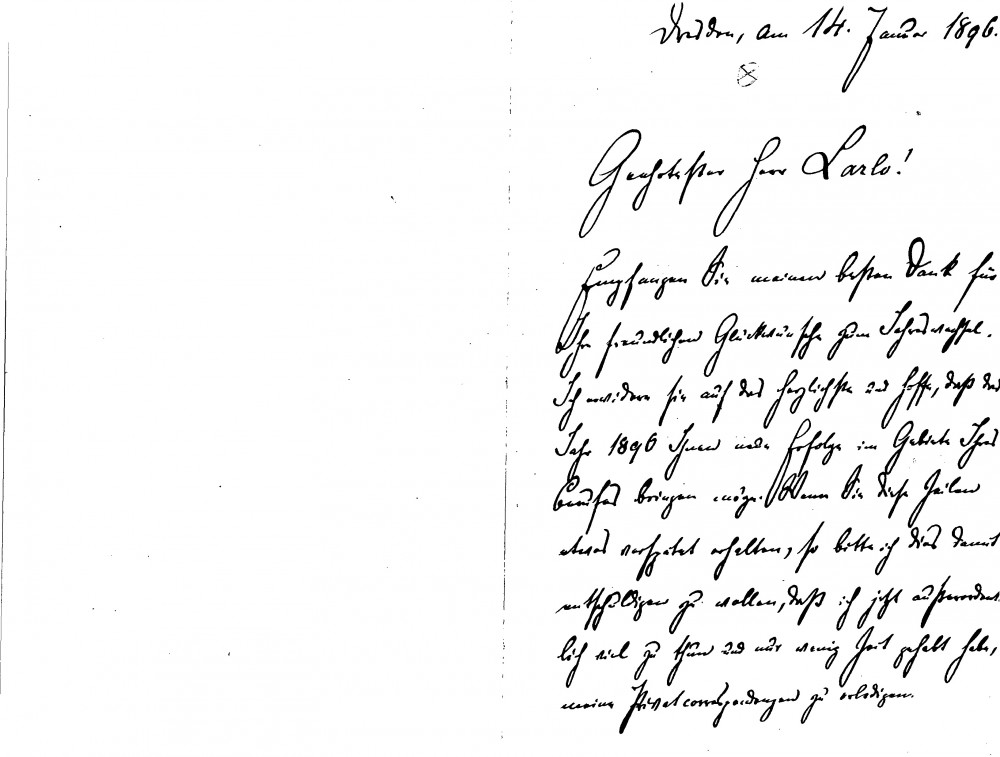 Dresden, am 14. Januar 1896.
Geehrtester Herr Carlo!
Empfangen Sie meinen besten Dank für
Ihre freundlichen Glückwünsche zum Jahreswechsel.
Ich erwidere sie auf das herzlichste und hoffe, daß das
Jahr 1896 Ihnen neue Erfolge im Gebiete Ihres
Berufes bringen möge. Wenn Sie diese Zeilen
etwas verspätet erhalten, so bitte ich dies damit
entschuldigen zu wollen, daß ich jetzt außerordent-
lich viel zu thun und nur wenig Zeit gehabt habe,
meine Privatcorrespondenzen zu erledigen.